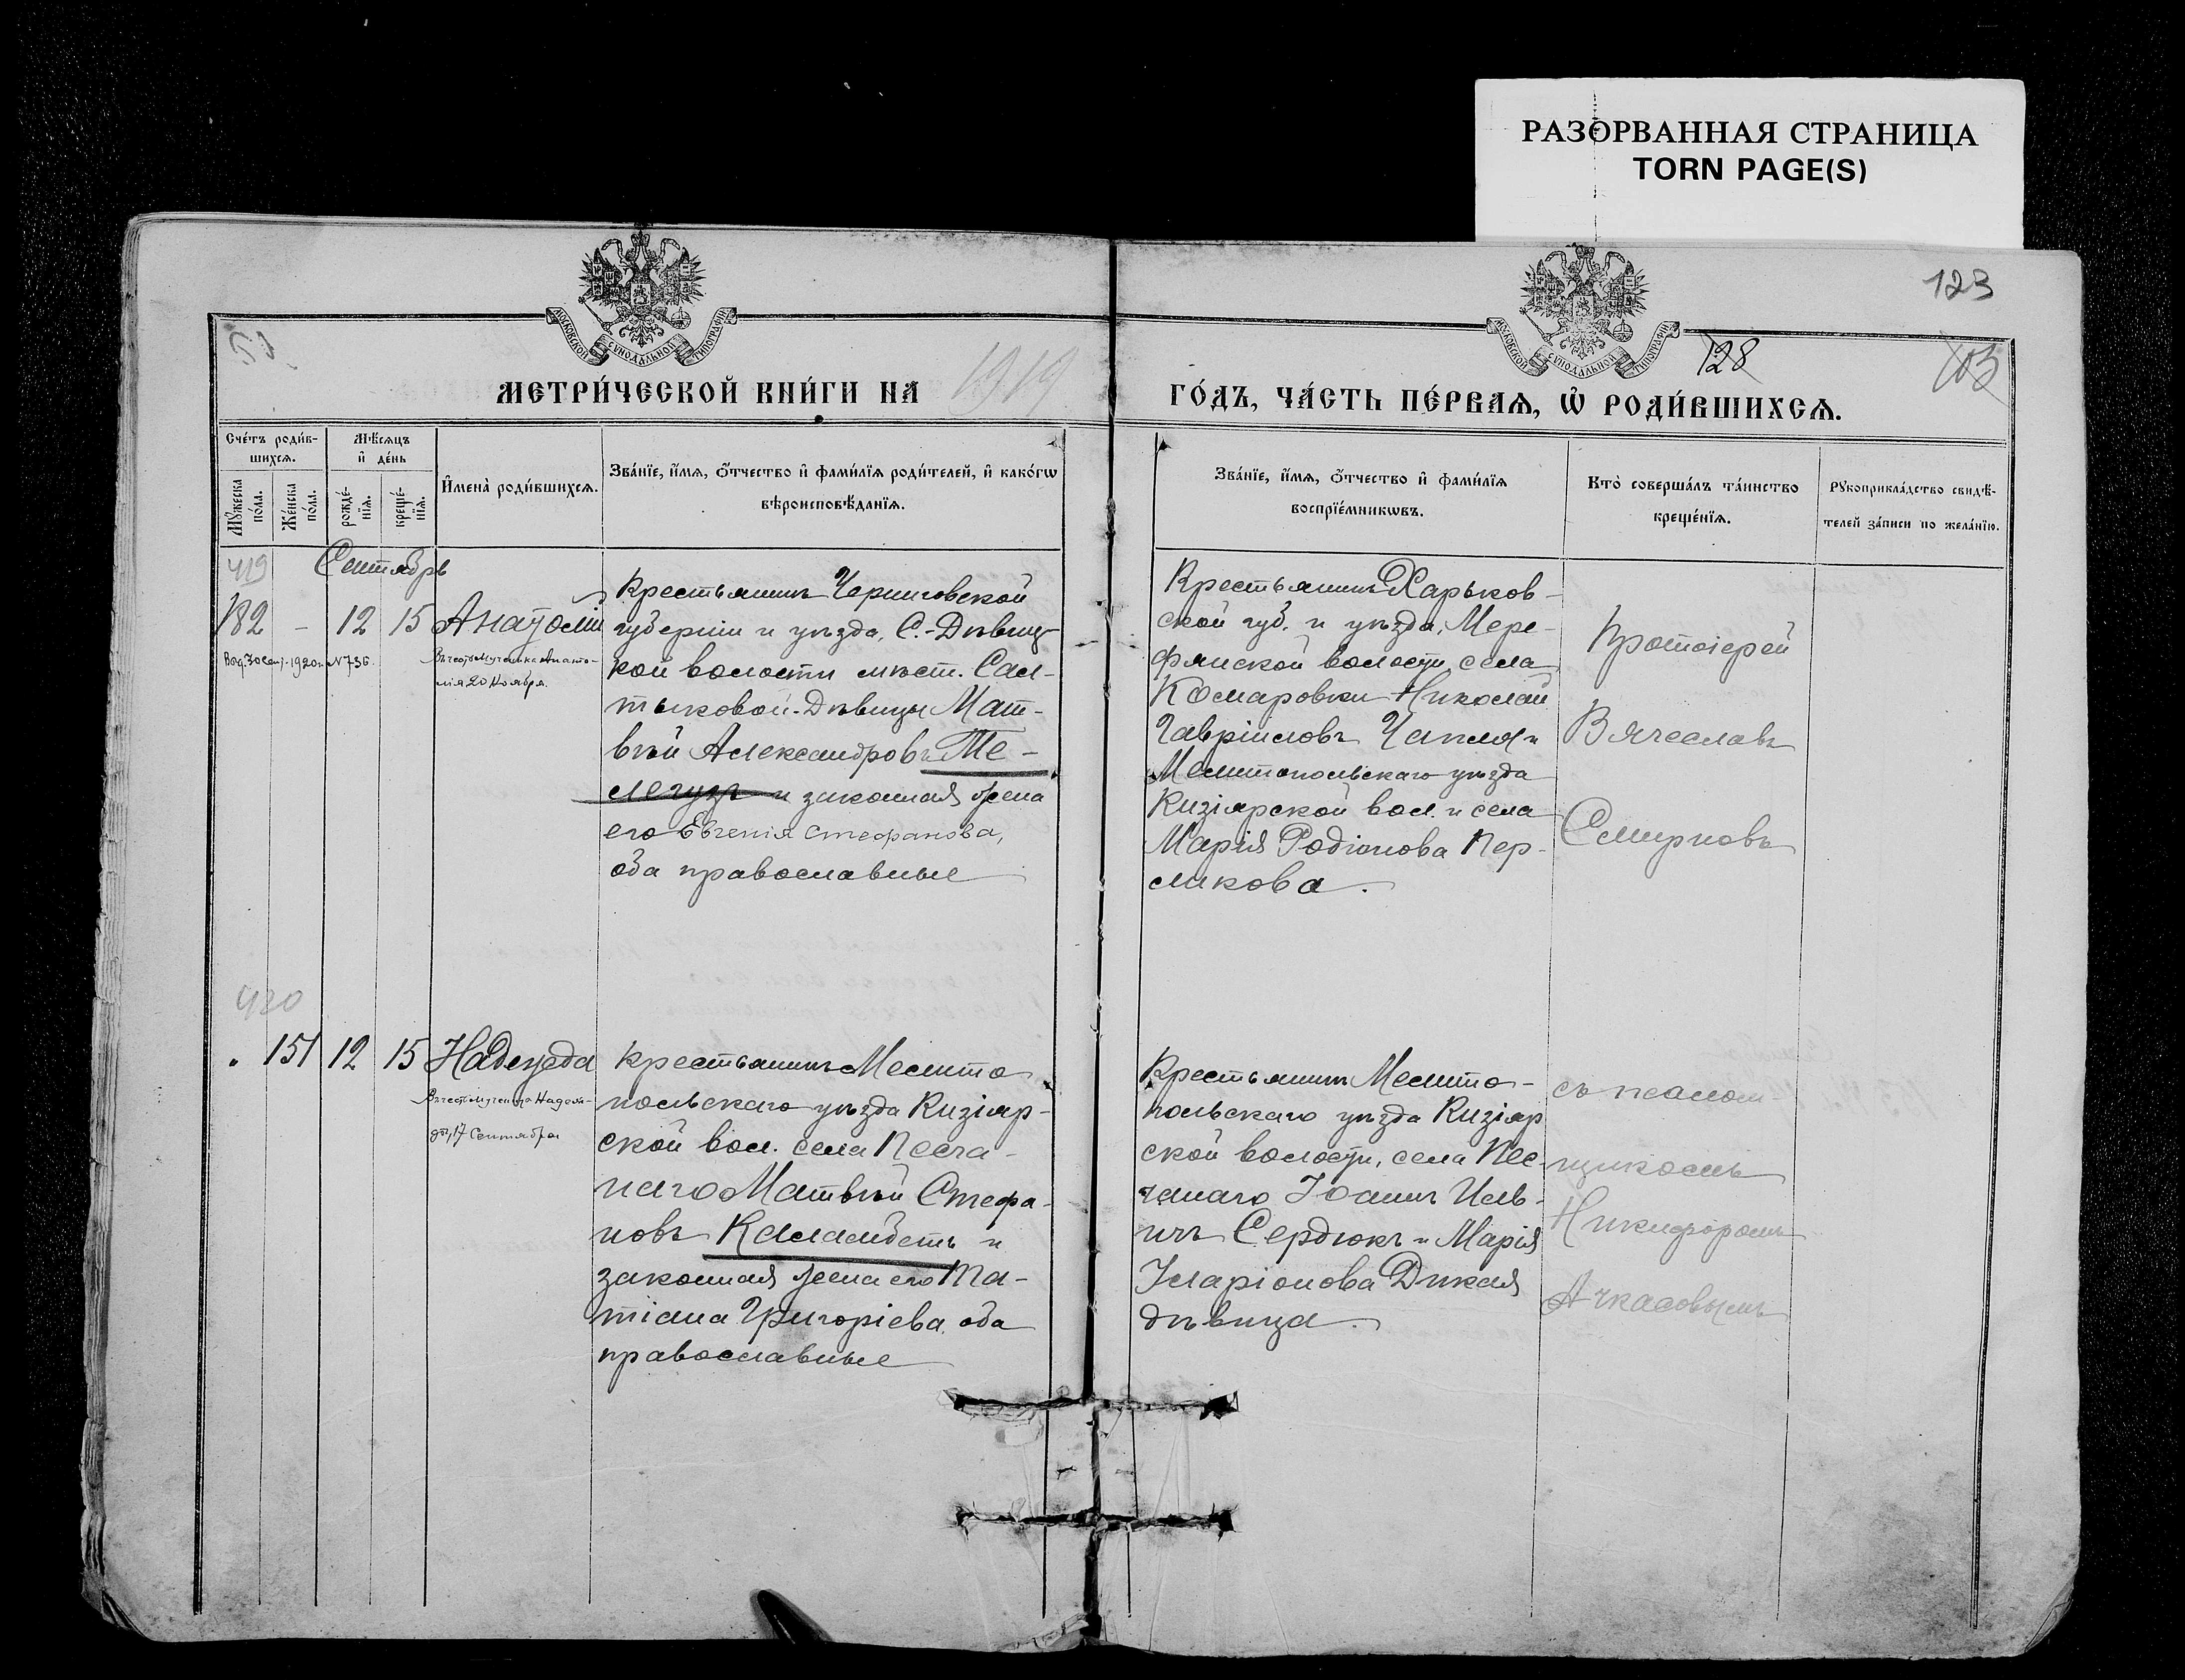 РАЗОРВАННАЯ СТРАНИЦА
TORN PAGE(S)
123
МОСКОВСКОЙ СѴНОДАЛЬНОЙ ТИПОГРАФІИ
МОСКОВСКОЙ СѴНОДАЛЬНОЙ ТИПОГРАФІИ
128
103
МЕТРИ́ЧЕСКОЙ КНИ́ГИ НА 1919
ГО́ДЪ, ЧА́СТЬ ПЕ́РВАѦ, Ѡ҆ РОДИ́ВШИХСѦ.
Сче́тъ роди́в-
шихсѧ.
Мѣ́сѧцъ
и҆ де́нь
Мꙋ́жеска
по́ла.
Же́нска
по́ла.
рожде́-
нїѧ.
креще́-
нїѧ.
И҆мена̀ роди́вшихсѧ.
Зва́нїе, и҆́мѧ, ѻ҆́тчество и҆ фами́лїѧ роди́телей, и҆ како́гѡ
вѣроисповѣ́данїѧ.
Зва́нїе, и҆́мѧ, ѻ҆́тчество и҆ фами́лїѧ
воспрїе́мникѡвъ.
Кто̀ соверша́лъ та́инство
креще́нїѧ.
Рꙋкоприкла́дство свидѣ́-
телей за́писи по жела́нїю.
419
Сентябрь
182 – 12 15 Анатолій
Выд. 30 Сент. 1920 г. № 736.
Въ честь Мученика Анато-
лія 20 Ноября.
Крестьянинъ Черниговской
губерніи и уѣзда, С.-Дѣвиц-
кой волости мѣст. Сал-
тыковой-Дѣвицы Мат-
вѣй Александровъ Ме-
легузъ и законная жена
его Евгенія Стефанова,
оба православные
Крестьянинъ Харьков-
ской губ. и уѣзда, Мере-
фянской волости, села
Комаровки Николай
Гавріиловъ Чапля и
Мелитопольскаго уѣзда
Кизіярской вол. и села
Марія Родіонова Пер-
ликова.
Протоіерей
Вячеславъ
Смирновъ
420
" 151 12 15 Надежда
Въ честь мученицы Надеж-
ды, 17 Сентября
Крестьянинъ Мелито
польскаго уѣзда Кизіяр-
ской вол. села Песча-
наго Матвѣй Стефа-
новъ Каламбетъ и
законная жена его Та-
тіана Григоріева, оба
православные
Крестьянинъ Мелито-
польскаго уѣзда Кизіяр
ской волости, села Пес-
чанаго Іоаннъ Иль-
инъ Сердюкъ и Марія
Иларіонова Дикая
дѣвица.
съ псалом-
щикомъ
Никифоромъ
Ачкасовымъ